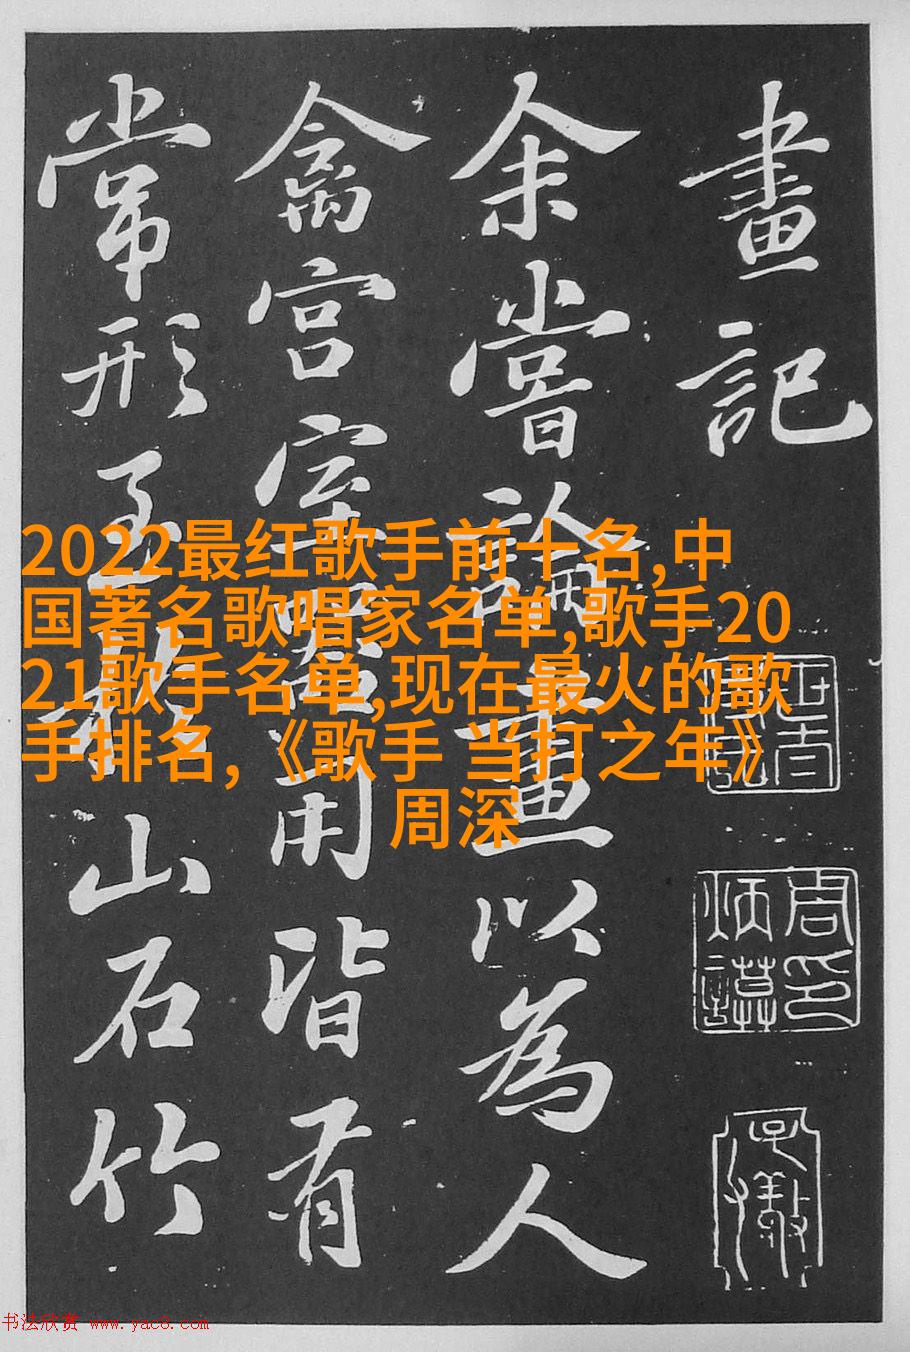 畫記
余嘗論畫以為人
禽宮室器用皆有
常形至於山石竹
2022最红歌手前十名,中
国著名歌唱家名单,歌手20
21歌手名单,现在最火的歌
手排名,《歌手 当打之年》
周深
书法欣赏 www.yac8.com